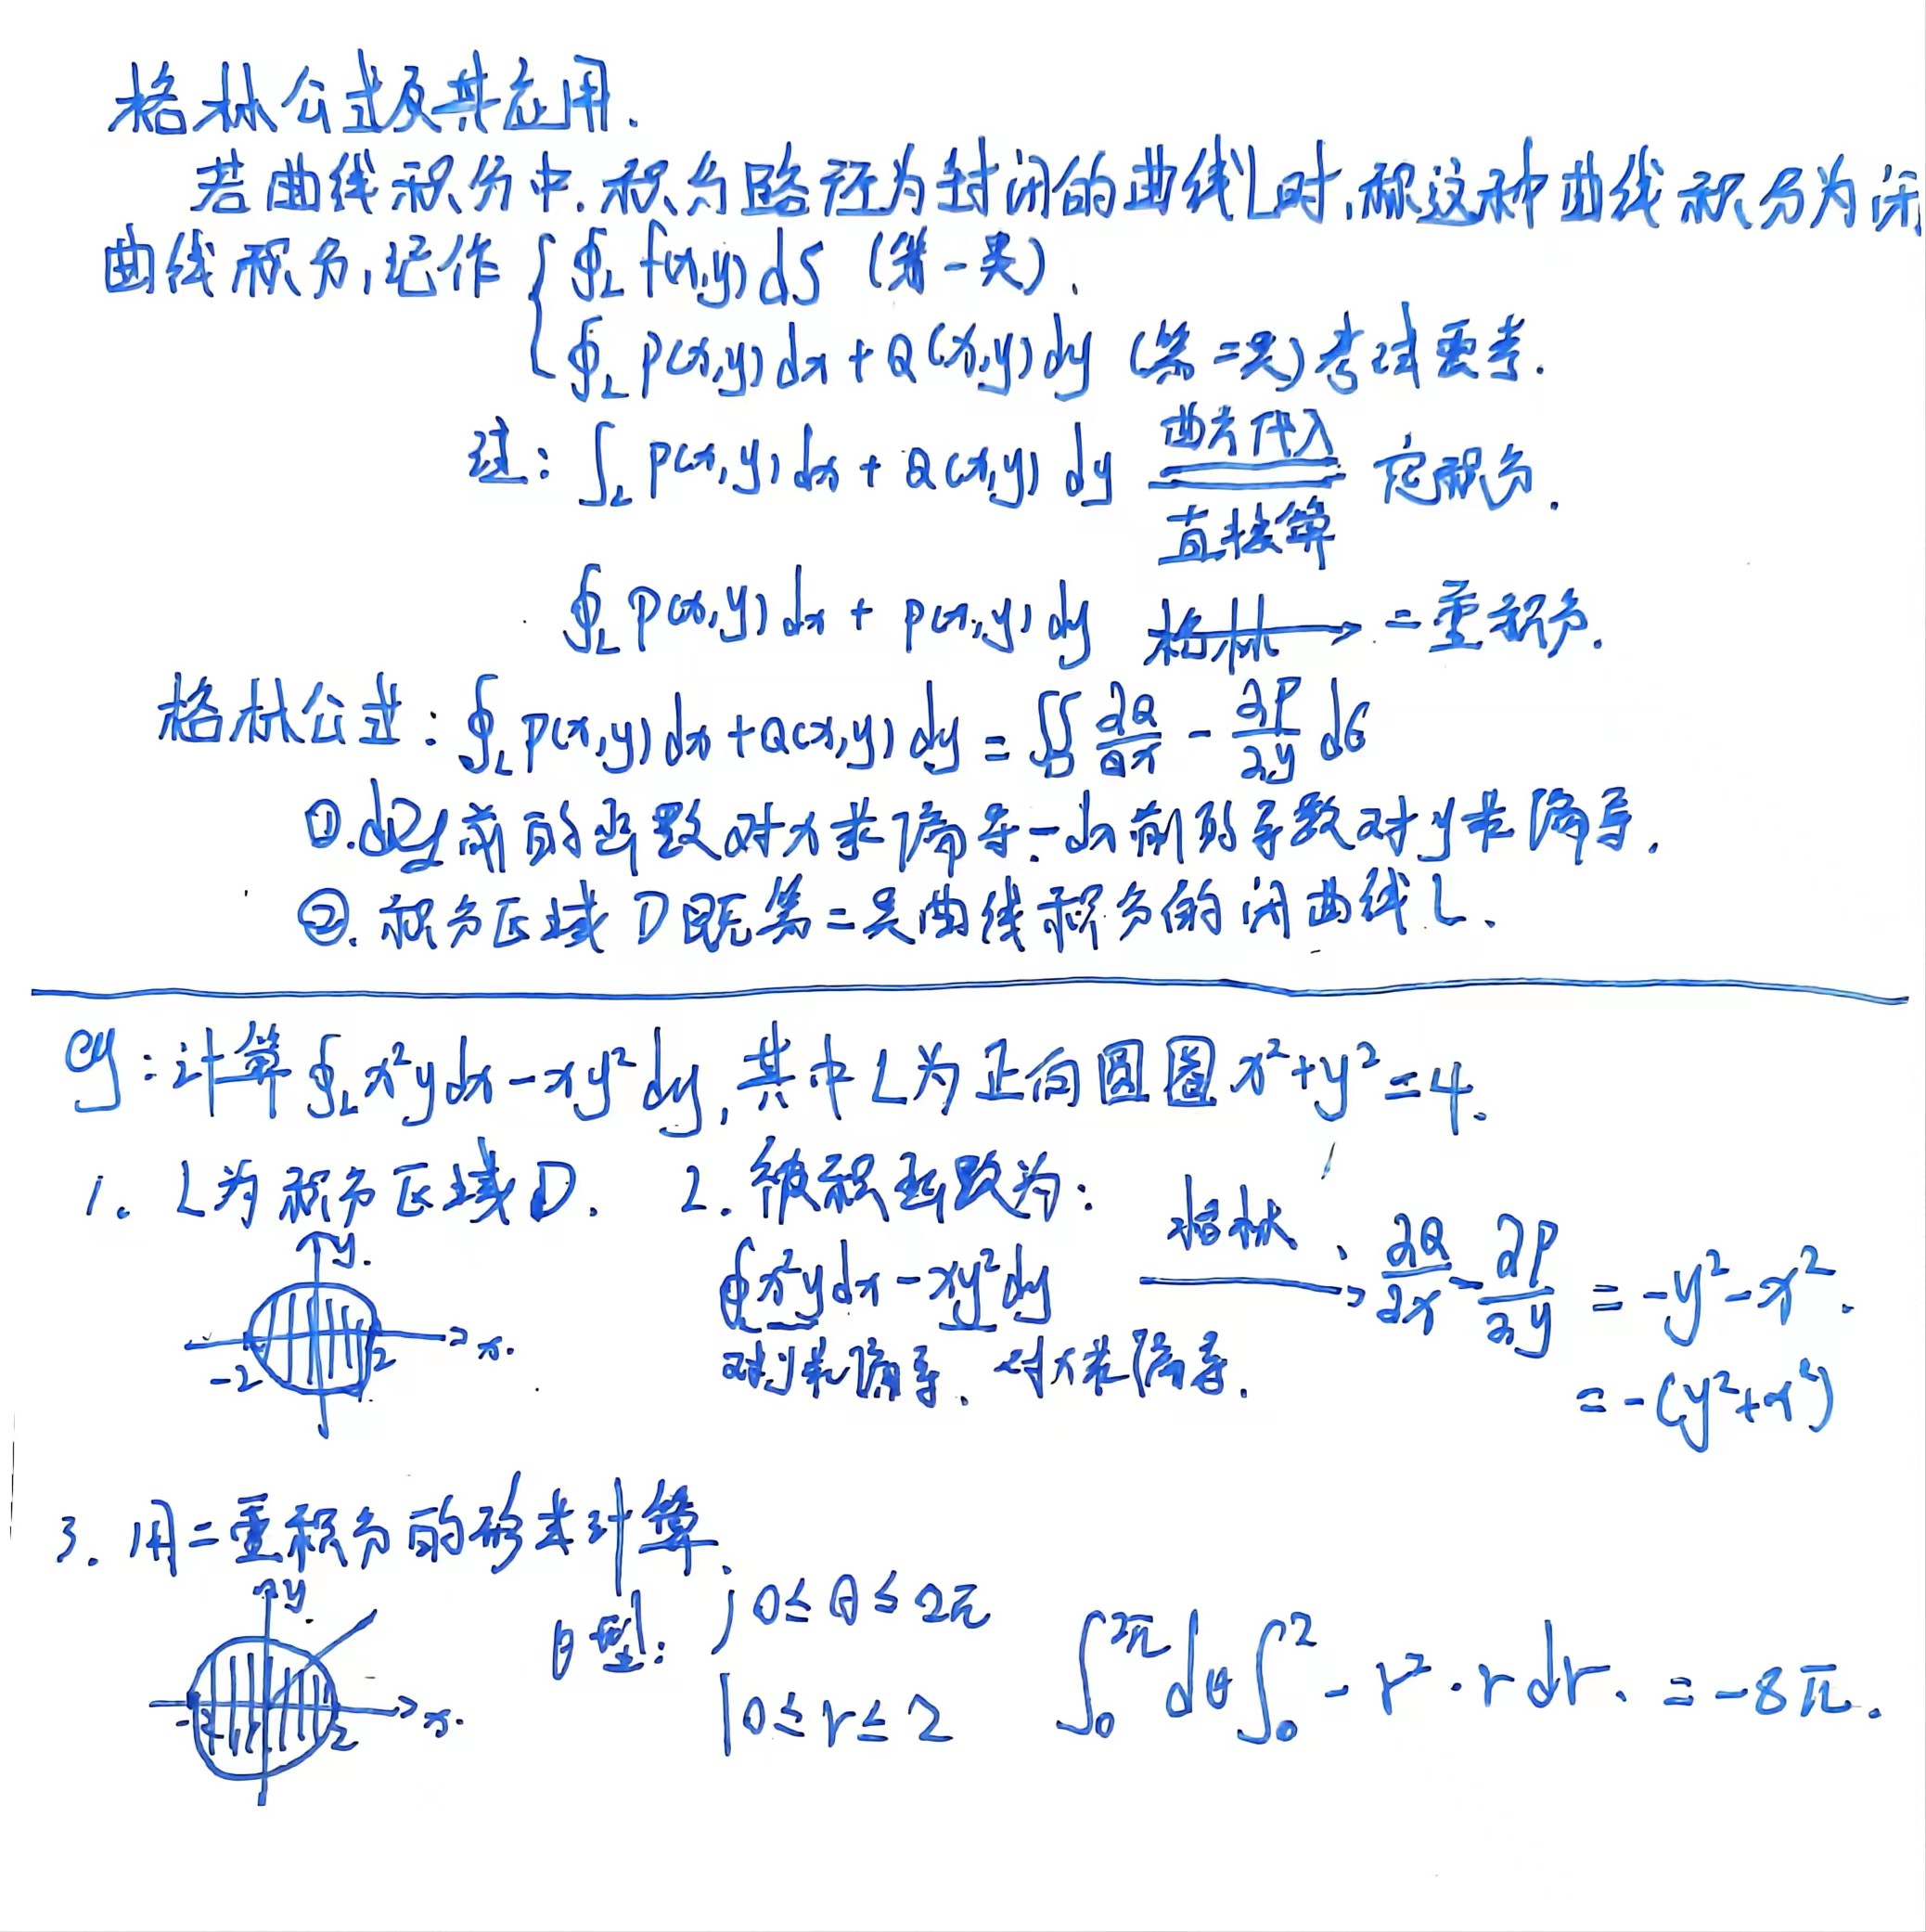 格林公式及其应用.
若曲线积分中,积分路径为封闭的曲线L时,称这种曲线积分为闭
曲线积分,记作 { ∮_L f(x,y) dS (第一类).
∮_L P(x,y) dx + Q(x,y) dy (第二类) 考试要考.
注: ∫_L P(x,y) dx + Q(x,y) dy 曲方代入 直接算 定积分.
∮_L P(x,y) dx + P(x,y) dy 格林 → 二重积分.
格林公式: ∮_L P(x,y) dx + Q(x,y) dy = ∬_D ∂Q/∂x - ∂P/∂y dσ
①. dy前的函数对x求偏导 - dx前的导数对y求偏导.
②. 积分区域D既为第二类曲线积分的闭曲线L.
eg: 计算∮_L x²y dx - xy² dy, 其中L为正向圆圈 x²+y²=4.
1. L为积分区域D. 2. 被积函数为:
y. x. -2 2
∮x²y dx - xy² dy 格林 → ∂Q/∂x - ∂P/∂y = -y² - x².
对y求偏导. 对x求偏导. = -(y²+x²)
3. 用二重积分的形式计算.
y. x. -2 2
θ型: { 0≤θ≤2π
0≤r≤2
∫_0^{2π} dθ ∫_0^2 -r²·r dr. = -8π.